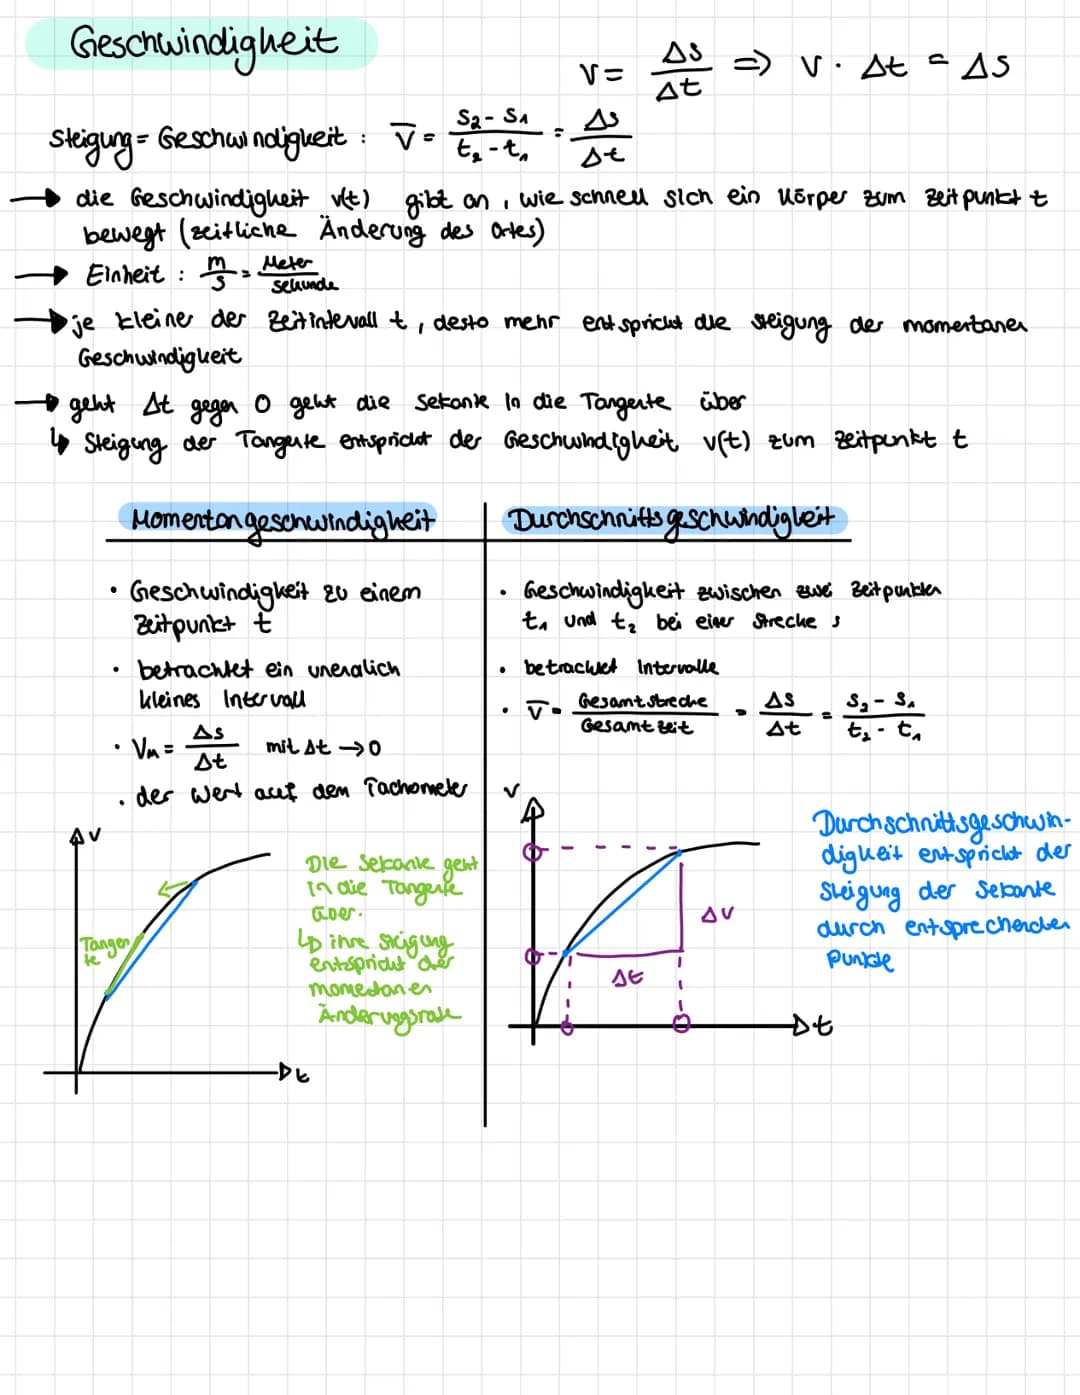 Geschwindigkeit
v = Δs/Δt => v · Δt = Δs
Steigung = Geschwindigkeit : v̄ = s₂ - s₁ / t₂ - t₁ = Δs/Δt
→ die Geschwindigkeit v(t) gibt an, wie schnell sich ein Körper zum Zeitpunkt t
bewegt (zeitliche Änderung des Ortes)
→ Einheit : m/s = Meter/Sekunde
→ je kleiner der Zeitintervall t, desto mehr entspricht die Steigung der momentanen
Geschwindigkeit
→ geht Δt gegen 0 geht die Sekante in die Tangente über
↳ Steigung der Tangente entspricht der Geschwindigkeit v(t) zum Zeitpunkt t
Momentangeschwindigkeit
• Geschwindigkeit zu einem
Zeitpunkt t
• betrachtet ein unendlich
kleines Intervall
• Vm = Δs/Δt mit Δt → 0
• der Wert auf dem Tachometer
V
Tangen
te
t
Die Sekante geht
in die Tangente
über.
↳ ihre Steigung
entspricht der
momentanen
Änderungsrate
Durchschnittsgeschwindigkeit
• Geschwindigkeit zwischen zwei Zeitpunkten
t₁ und t₂ bei einer Strecke s
• betrachtet Intervalle
• v̄ = Gesamtstrecke/Gesamtzeit = Δs/Δt = s₂ - s₁ / t₂ - t₁
V
ΔV
Δt
t
Durchschnittsgeschwin-
digkeit entspricht der
Steigung der Sekante
durch entsprechenden
Punkte